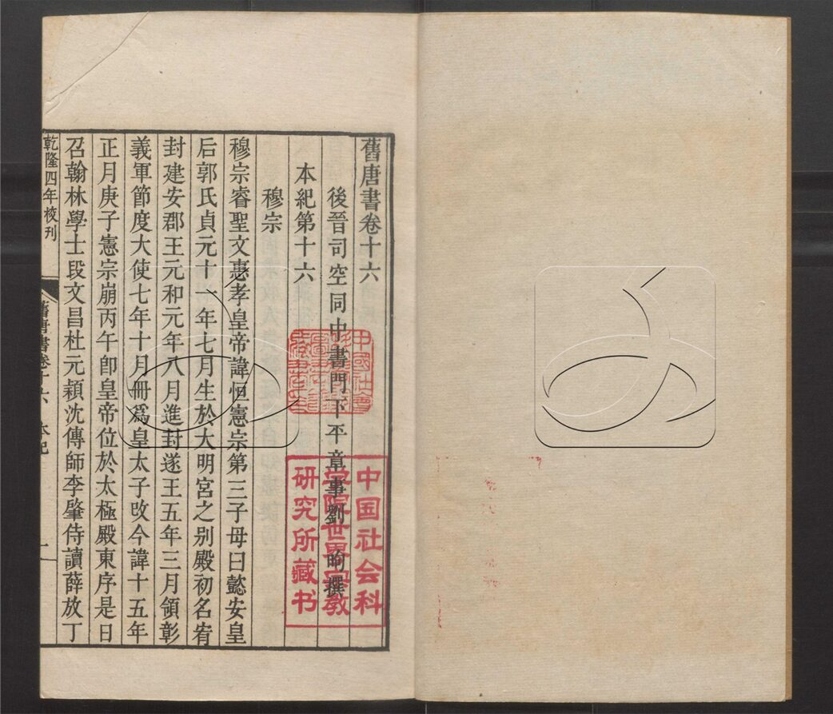 舊唐書卷十六
後晉司空同中書門下平章事劉昫撰
本紀第十六
穆宗
穆宗睿聖文惠孝皇帝諱恒憲宗第三子母曰懿安皇
后郭氏貞元十一年七月生於大明宮之別殿初名宥
封建安郡王元和元年八月進封遂王五年三月領彰
義軍節度大使七年十月冊爲皇太子改今諱十五年
正月庚子憲宗崩丙午卽皇帝位於太極殿東序是日
召翰林學士段文昌杜元穎沈傳師李肇侍讀薛放丁
乾隆四年校刊
舊唐書卷十六 本紀
一
中国社会科
学院世界宗教
研究所藏书